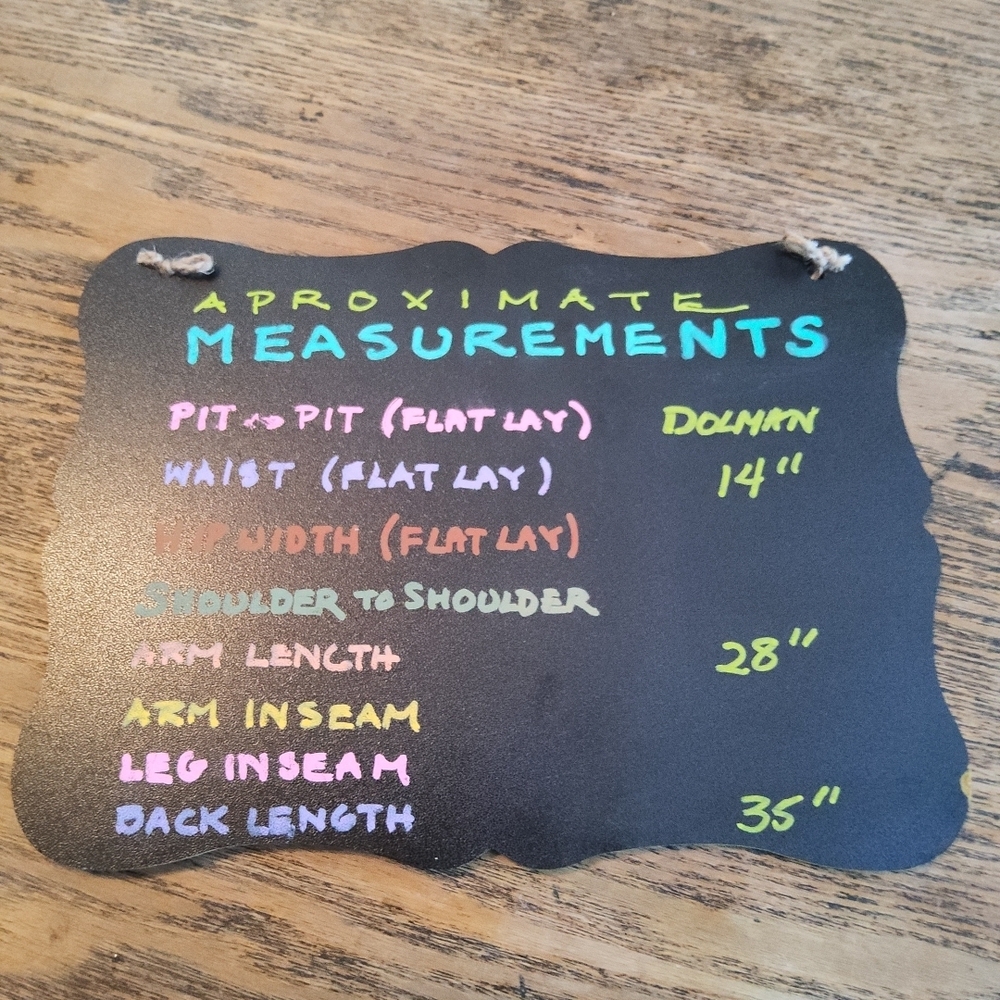 APROXIMATE
MEASUREMENTS
PIT ↔ PIT (FLAT LAY) DOLMAN
WAIST (FLAT LAY) 14"
HIP WIDTH (FLAT LAY)
SHOULDER TO SHOULDER
ARM LENGTH 28"
ARM INSEAM
LEG INSEAM
BACK LENGTH 35"